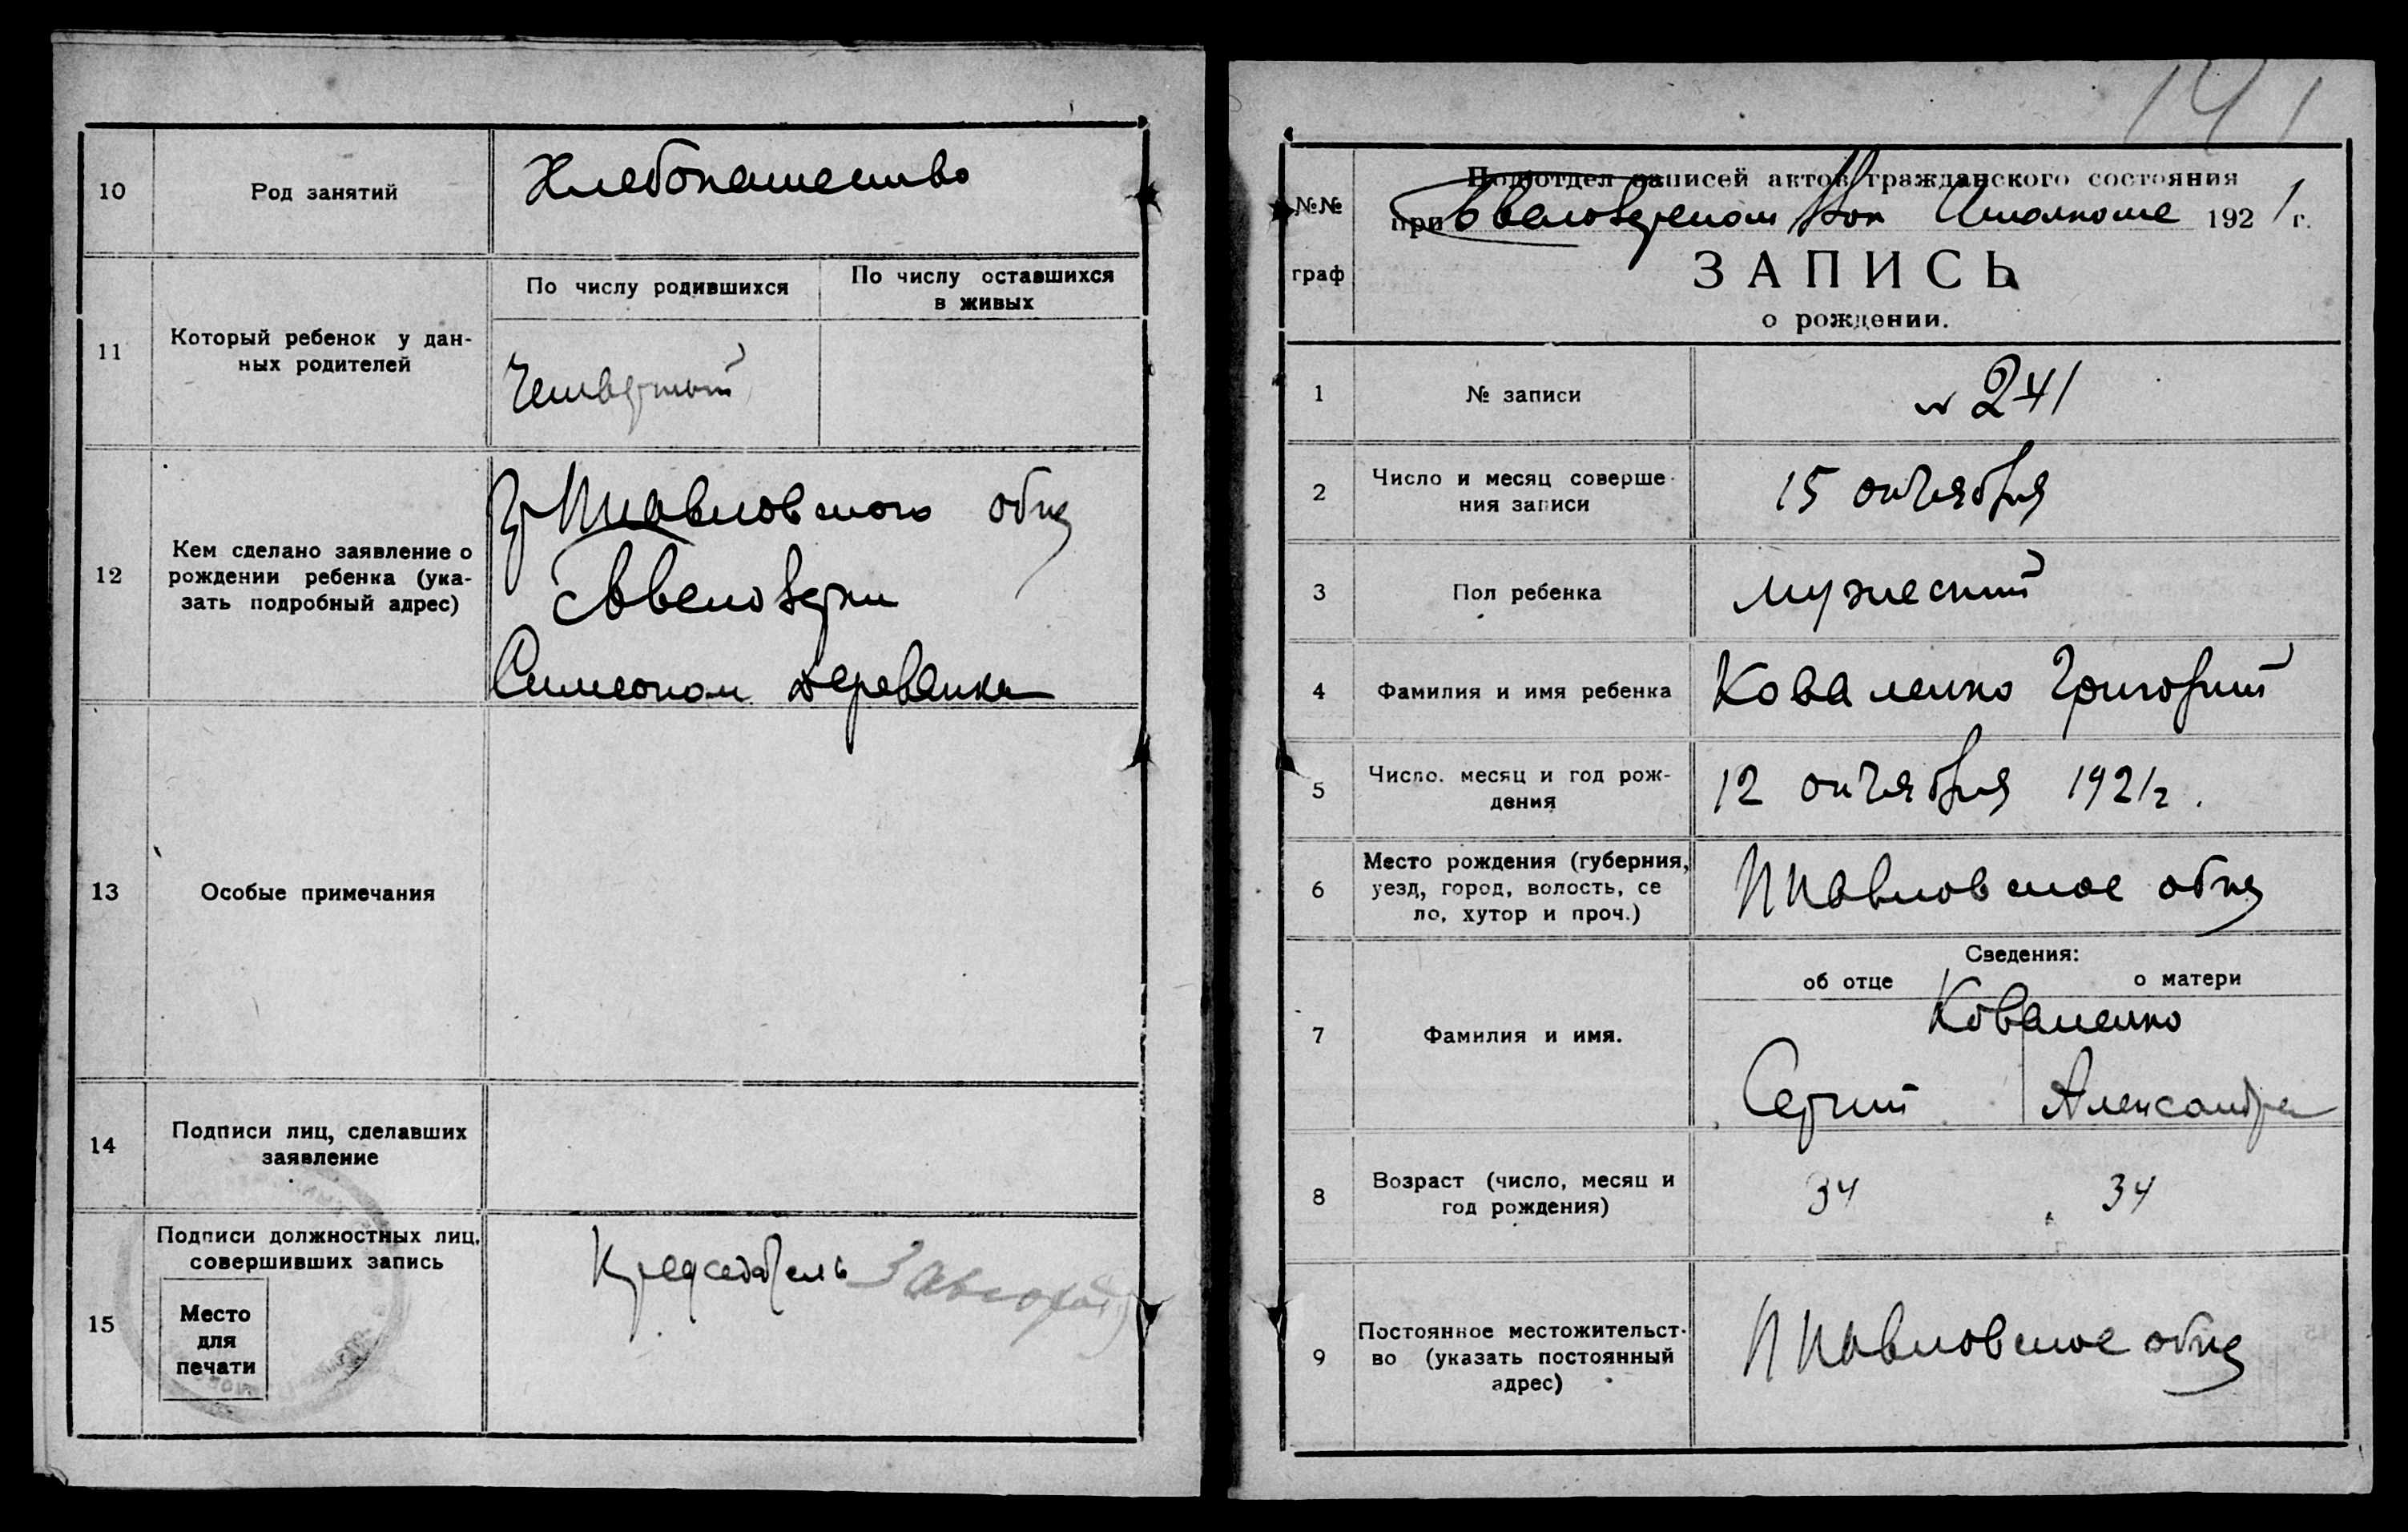 10
Род занятий
Хлебопашество
11
Который ребенок у дан-
ных родителей
По числу родившихся
По числу оставшихся
в живых
Четвертый
12
Кем сделано заявление о
рождении ребенка (ука-
зать подробный адрес)
Гр Ппавловского общ
Симеоном Деревянка
13
Особые примечания
14
Подписи лиц, сделавших
заявление
15
Подписи должностных лиц,
совершивших запись
Место
для
печати
Председатель
141
№№
граф
Подотдел записей актов гражданского состояния
при Исполкоме 1921 г.
ЗАПИСЬ
о рождении.
1
№ записи
№ 241
2
Число и месяц соверше-
ния записи
15 октября
3
Пол ребенка
Мужеский
4
Фамилия и имя ребенка
Коваленко Григорий
5
Число. месяц и год рож-
дения
12 октября 1921 г.
6
Место рождения (губерния,
уезд, город, волость, се
ло, хутор и проч.)
Ппавловское общ
7
Фамилия и имя.
Сведения:
об отце
о матери
Коваленко
Сергий
Александра
8
Возраст (число, месяц и
год рождения)
34
34
9
Постоянное местожительст-
во (указать постоянный
адрес)
Ппавловское общ